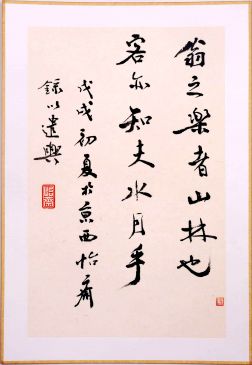 翁之乐者山林也
客亦知夫水月乎
戊戌初夏于京西怡斋
录以遣兴